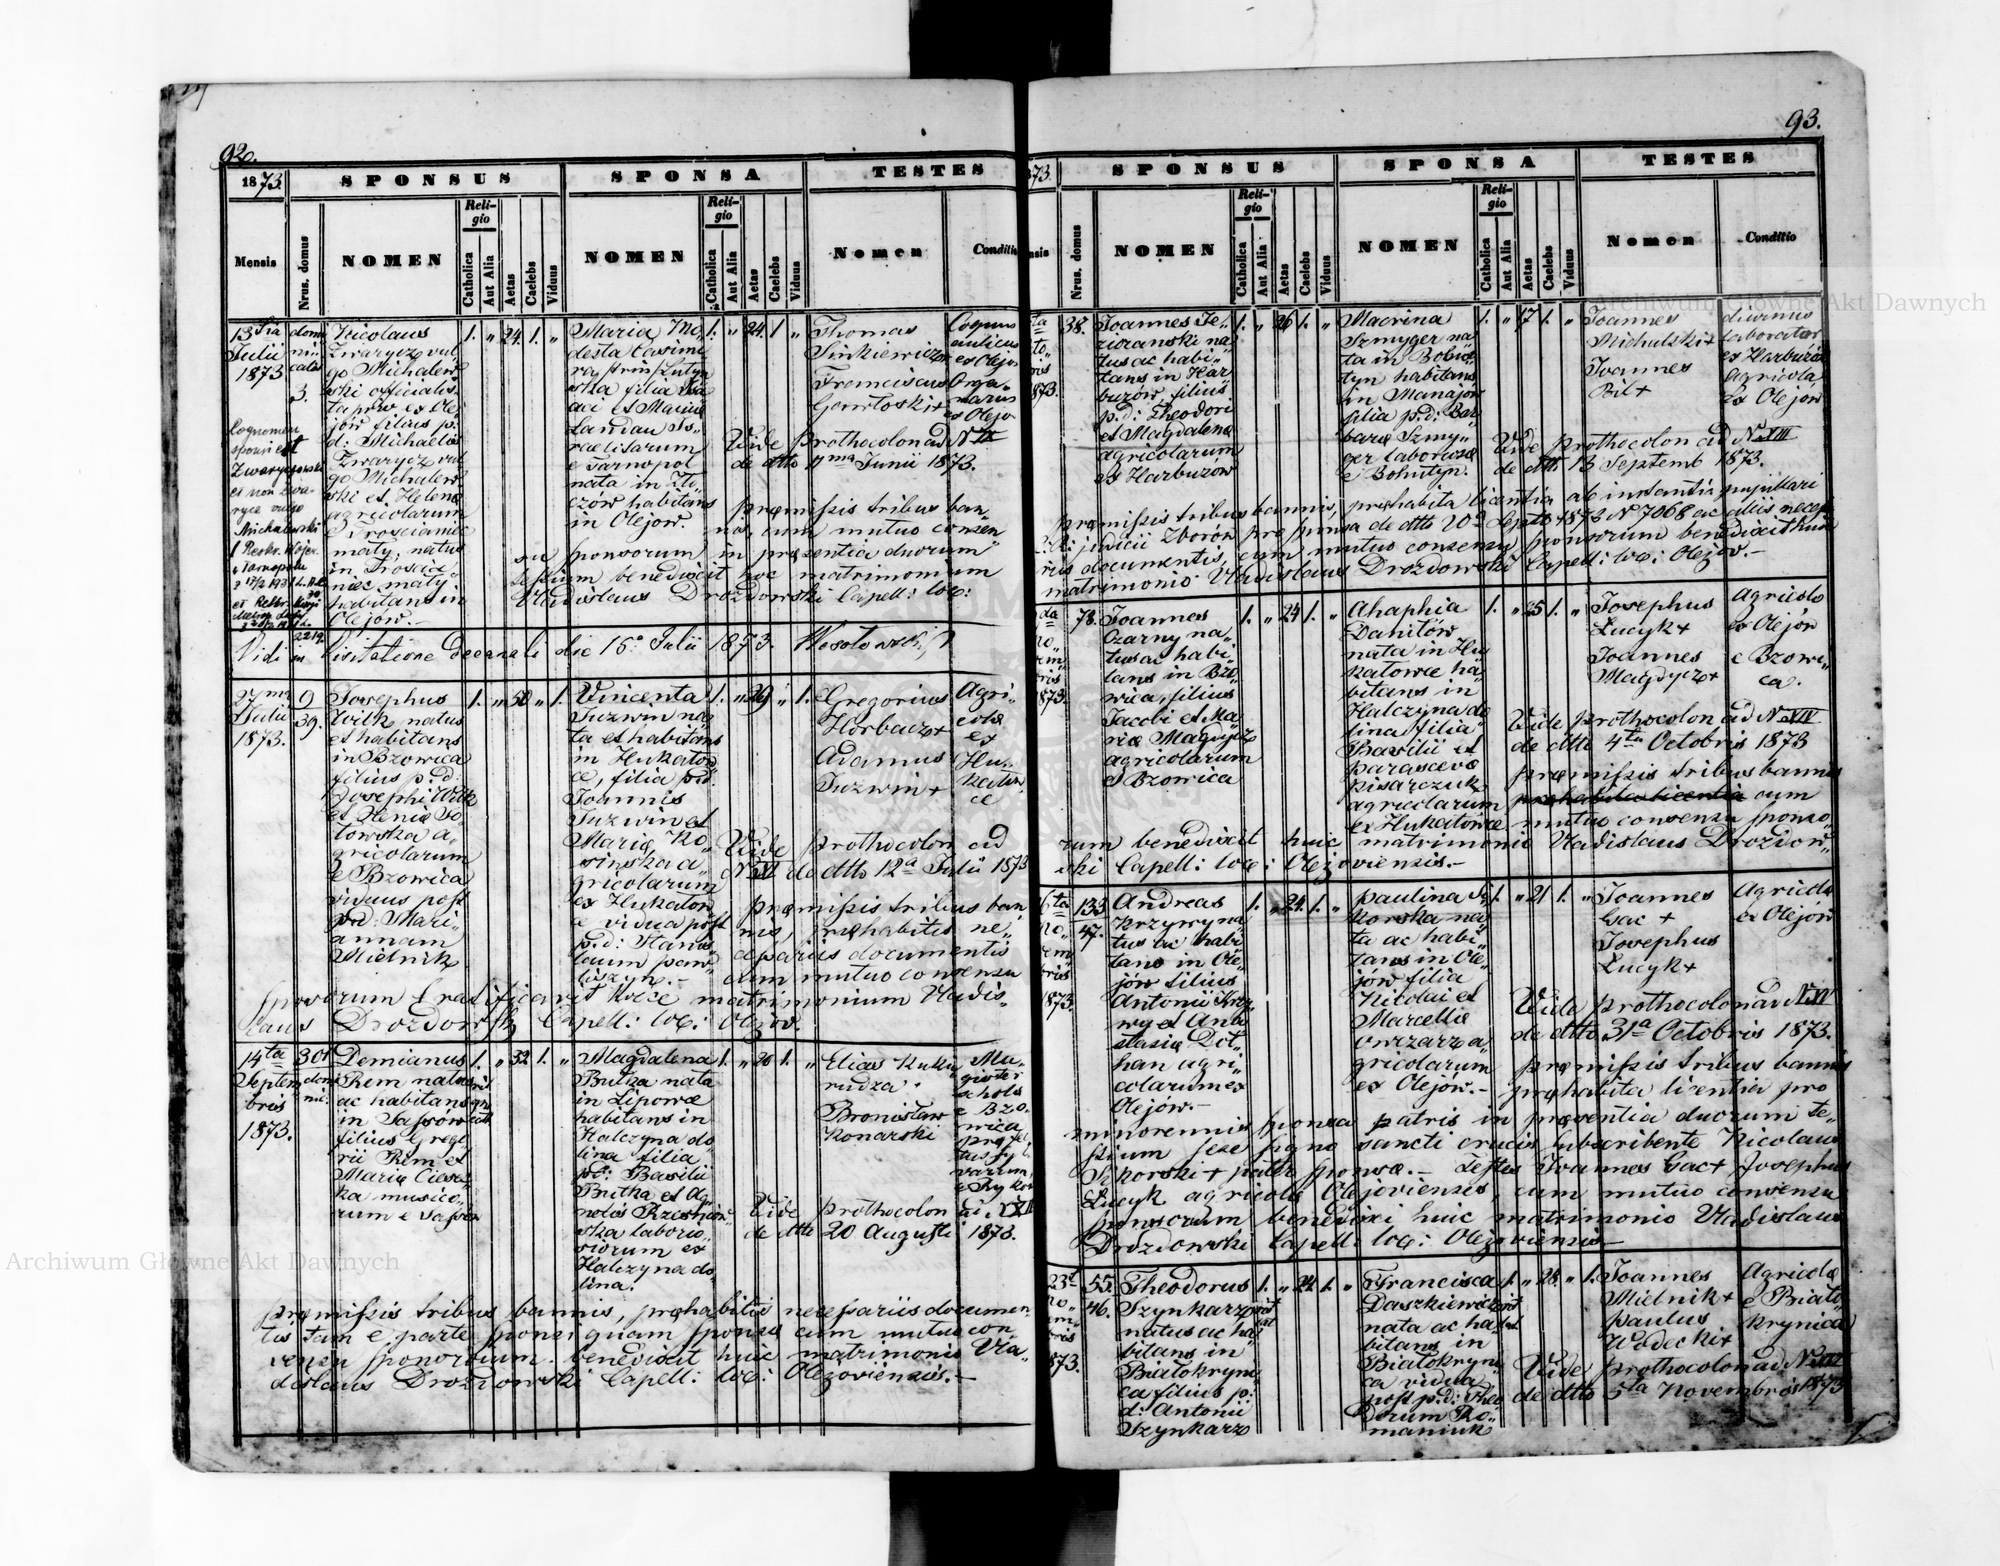 92.
1873.
SPONSUS
SPONSA
TESTES
Mensis
Nrus. domus
NOMEN
Religio
Catholica
Aut Alia
Aetas
Caelebs
Viduus
NOMEN
Religio
Catholica
Aut Alia
Aetas
Caelebs
Viduus
Nomen
Conditio
13tia
Julii
1873
domi
nii
calis
3.
Nicolaus
Zwarycz vul
go Michalew
ski officialis
ex Olej
jów filius p:
d: Michaelis
Zwarycz vul
go Michalew
ski et Helena
agricolarum
e Trościaniec
mały, natus
in Trościa
niec mały
habitans in
Olejów.
1. " 24 1. "
Maria Mo
desta Casimi
ra
filia Isa
aci et Maria
Landau Is
raelitarum
e Tarnopol
nata in Zło
czów habitans
in Olejów.
1. " 24 1 "
Thomas
Sinkiewicz
Franciscus
Gawłoski+
ex Olejow
Orga
narius
ex Olejo
Vide prothocolon ad N IX
de dtto 11ma Junii 1873.
præmissis tribus ban
nis, cum mutuo consen
su sponsorum in præsentia duorum
testium benedixit hoc matrimonium
Vladislaus Drozdowski Capell: loc:
Cognomen
sponsi est
Zwaryczewski
et non Zwa
rycz vulgo
Michalewski
Vidi in Visitatione decanali die 16o Julii 1873.
27ma
Julii
1873.
9
39.
Josephus
Wilk natus
et habitans
in Bzowica
filius p:d:
Josephi Wilk
et Xenia So
towska a
gricolarum
e Bzowica
viduus post
p:d: Mari
annam
Mielnik
1. " 50 " 1.
Vincenta
Juzwin na
ta et habitans
in Hukałow
ce, filia p:d:
Joannis
Juzwin et
Maria Ko
sinska a
gricolarum
ex Hukałow
ce vidua post
p:d: Stanis
laum paw
liszyn.-
1. " 29 " 1.
Gregorius
Horbacz+
Adamus
Juzwin+
Agri
cola
ex
Hu
kałow
ce
Vide prothocolon ad
N XI de dtto 12a Julii 1873
præmissis tribus ban
nis, præhabitis ne
cessariis documentis
cum mutuo consensu
sponsorum ratificavit hocce matrimonium Vladis
laus Drozdowski Capell: loc: Olejov.
14ta
Septem
bris
1873.
301
dom
ni:
Demianus
Rem natus
ac habitans
in Sassów
filius Grego
rii Rem et
Maria Cieśel
ka musico
rum e Sassow
1. " 32 1. "
Magdalena
Butka nata
in Lipowce
habitans in
Halczyna do
lina filia
p:d: Basilii
Butka et Ag
nolia Rzeshow
ska laborio
siorum ex
Halczyna do
lina.
1. " 20 1. "
Elias Kuku
rudza
Bronisław
Konarski
Ma
gister
schola
e Bzo
wica
præfec
tus sy
varum
Vide prothocolon ad N XII
de dtto 20 Augusti 1873.
præmissis tribus bannis, præhabitis necessariis documen
tis tam e parte sponsi quam sponsæ cum mutuo con
sensu sponsorum benedixit huic matrimonio Vla
dislaus Drozdowski Capell: loc: Olejoviensis.-
93.
873.
SPONSUS
SPONSA
TESTES
Nrus. domus
NOMEN
Religio
Catholica
Aut Alia
Aetas
Caelebs
Viduus
NOMEN
Religio
Catholica
Aut Alia
Aetas
Caelebs
Viduus
Nomen
Conditio
38.
Joannes Je
zieranski na
tus ac habi
tans in Har
buzów, filius
p:d: Theodori
et Magdalena
agricolarum
ex Harbuzów
1. " 26 1. "
Macrina
Szmyger na
ta in Bohu
tyn habitans
in Manajow
filia p:d: Bar
bara Szmy
ger laboriosæ
e Bohutyn.
1. " 17 1. "
Joannes
Michalski+
Joannes
Pil+
diurnus
laborator
ex Harbuzów
agricola
ex Olejów
Vide prothocolon ad N XIII
de dtt. 13 Septemb 1873.
præmissis tribus bannis, præhabita licentia ab instantia pupillari
judicii Zborów pro sponsa de dtto 20a Septb 1873 N 7068 ac aliis necessa
riis documentis, cum mutuo consensu sponsorum benedixit huic
matrimonio Vladislaus Drozdowski Capell: loc: Olejov.-
78.
Joannes
Czarny na
tus ac habi
tans in Bzo
wica, filius
Jacobi et Ma
ria Magdycz
agricolarum
e Bzowica
1. " 24 1. "
Ahaphia
Daniłów
nata in Hu
kałowce ha
bitans in
Halczyna do
lina filia
Basilii et
parasceva
pisarczuk
agricolarum
ex Hukałowce
1. " 25 1. "
Josephus
Łucyk+
Joannes
Magdycz+
Agricola
ex Olejów
e Bzowi
ca.
Vide prothocolon ad N XIV
de dtto 4ta Octobris 1873
præmissis tribus bannis
præhabita licentia cum
mutuo consensu sponso
rum benedixit huic matrimonio Vladislaus Drozdow
ski Capell: loc: Olejoviensis.-
133
47.
Andreas
Krzywy na
tus ac habi
tans in Ole
jów filius
Antonii Krzy
wy et Ana
stasia Dot
han agri
colarum ex
Olejów.-
1. " 24. 1. "
paulina Si
korska na
ta ac habi
tans in Ole
jów filia
Nicolai et
Marcella
Owczarz a
gricolarum
ex Olejów.-
1. " 21 1. "
Joannes
Gac +
Josephus
Łucyk+
Agricola
ex Olejów
Vide prothocolon ad N XV
de dtto 31a Octobris 1873.
præmissis tribus bannis
præhabita licentia pro
minorennis sponsa patris in præsentia duorum te
stium sese signo sancti crucis subscribente Nicolaus
Sikorski + pater sponsæ.- Testes Joannes Gac+ Josephus
Łucyk agricolæ Olejovienses, cum mutuo consensu
sponsorum benedixi huic matrimonio Vladislaus
Drozdowski Capell: loc: Olejoviensis-
23
1873.
55.
46.
Theodorus
Szynkarz
natus ac ha
bitans in
Białokryni
ca filius p:
d: Antonii
Szynkarz
1. " 24. 1. "
Francisca
Daszkiewicz
nata ac ha
bitans in
Białokryni
ca vidua
post p:d: Theo
dorum Ro
maniuk
1. " 28. " 1.
Joannes
Mielnik+
paulus
Wodecki+
Agricolæ
e Biało
krynica
Vide prothocolon ad N XVI
de dtto 5ta Novembris 1873
Archiwum Główne Akt Dawnych
Archiwum Główne Akt Dawnych